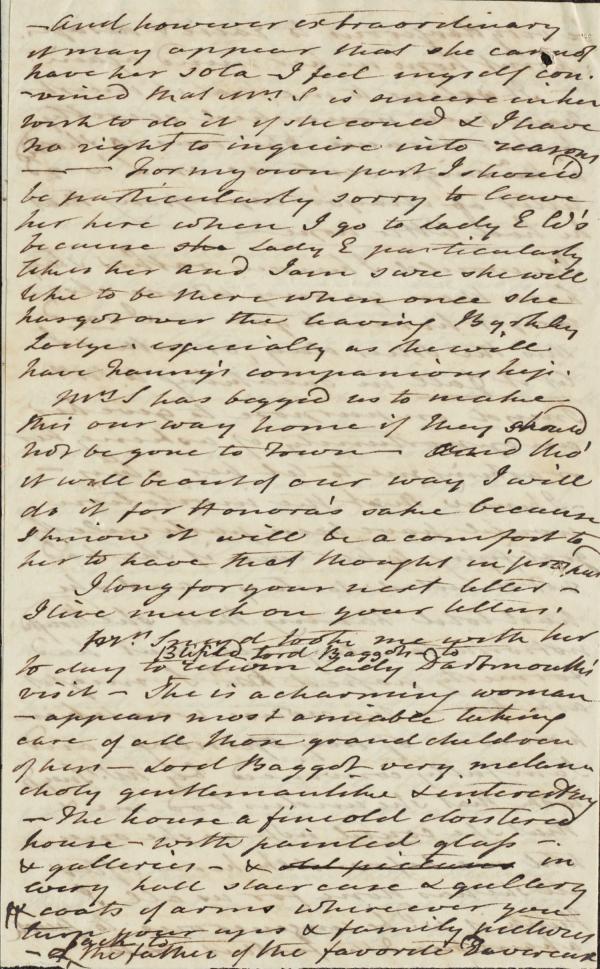 – And however extraordinary
it may appear that she can not
have her sola – I feel myself con-
-vinced that Mrs S is sincere in her
wish to do it if she could & I have
no right to inquire into reasons
— For my own part I should
be particularly sorry to leave
her here when I go to Lady E W's
because she Lady E particularly
likes her and I am sure she will
like to be there when once she
has got over the leaving Byrkley
Lodge. especially as she will
have Fanny's companionship.
Mrs S has begged us to make
this our way home if they should
not be gone to Town – And tho'
it will be out of our way I will
do it for Honora's sake because
I know it will be a comfort to
her to have that thought in
I long for your next letter –
I live much on your letters.
Mrs Sneyd took me with her
Blifild Lord Baggot's – to
to day to return Lady Dartmouth's
visit – She is a charming woman
– appears most amiable taking
care of all those grandchildren
of hers – Lord Baggot very melan
choly gentlemanlike & interesting
– The house a fine old cloistered
house – with painted glass –
& galleries – & old pictures in
every hall stair case & gallery
& coats of arms wherever you
turn your eyes & family pictures
– back to the father of the favorite Devereux